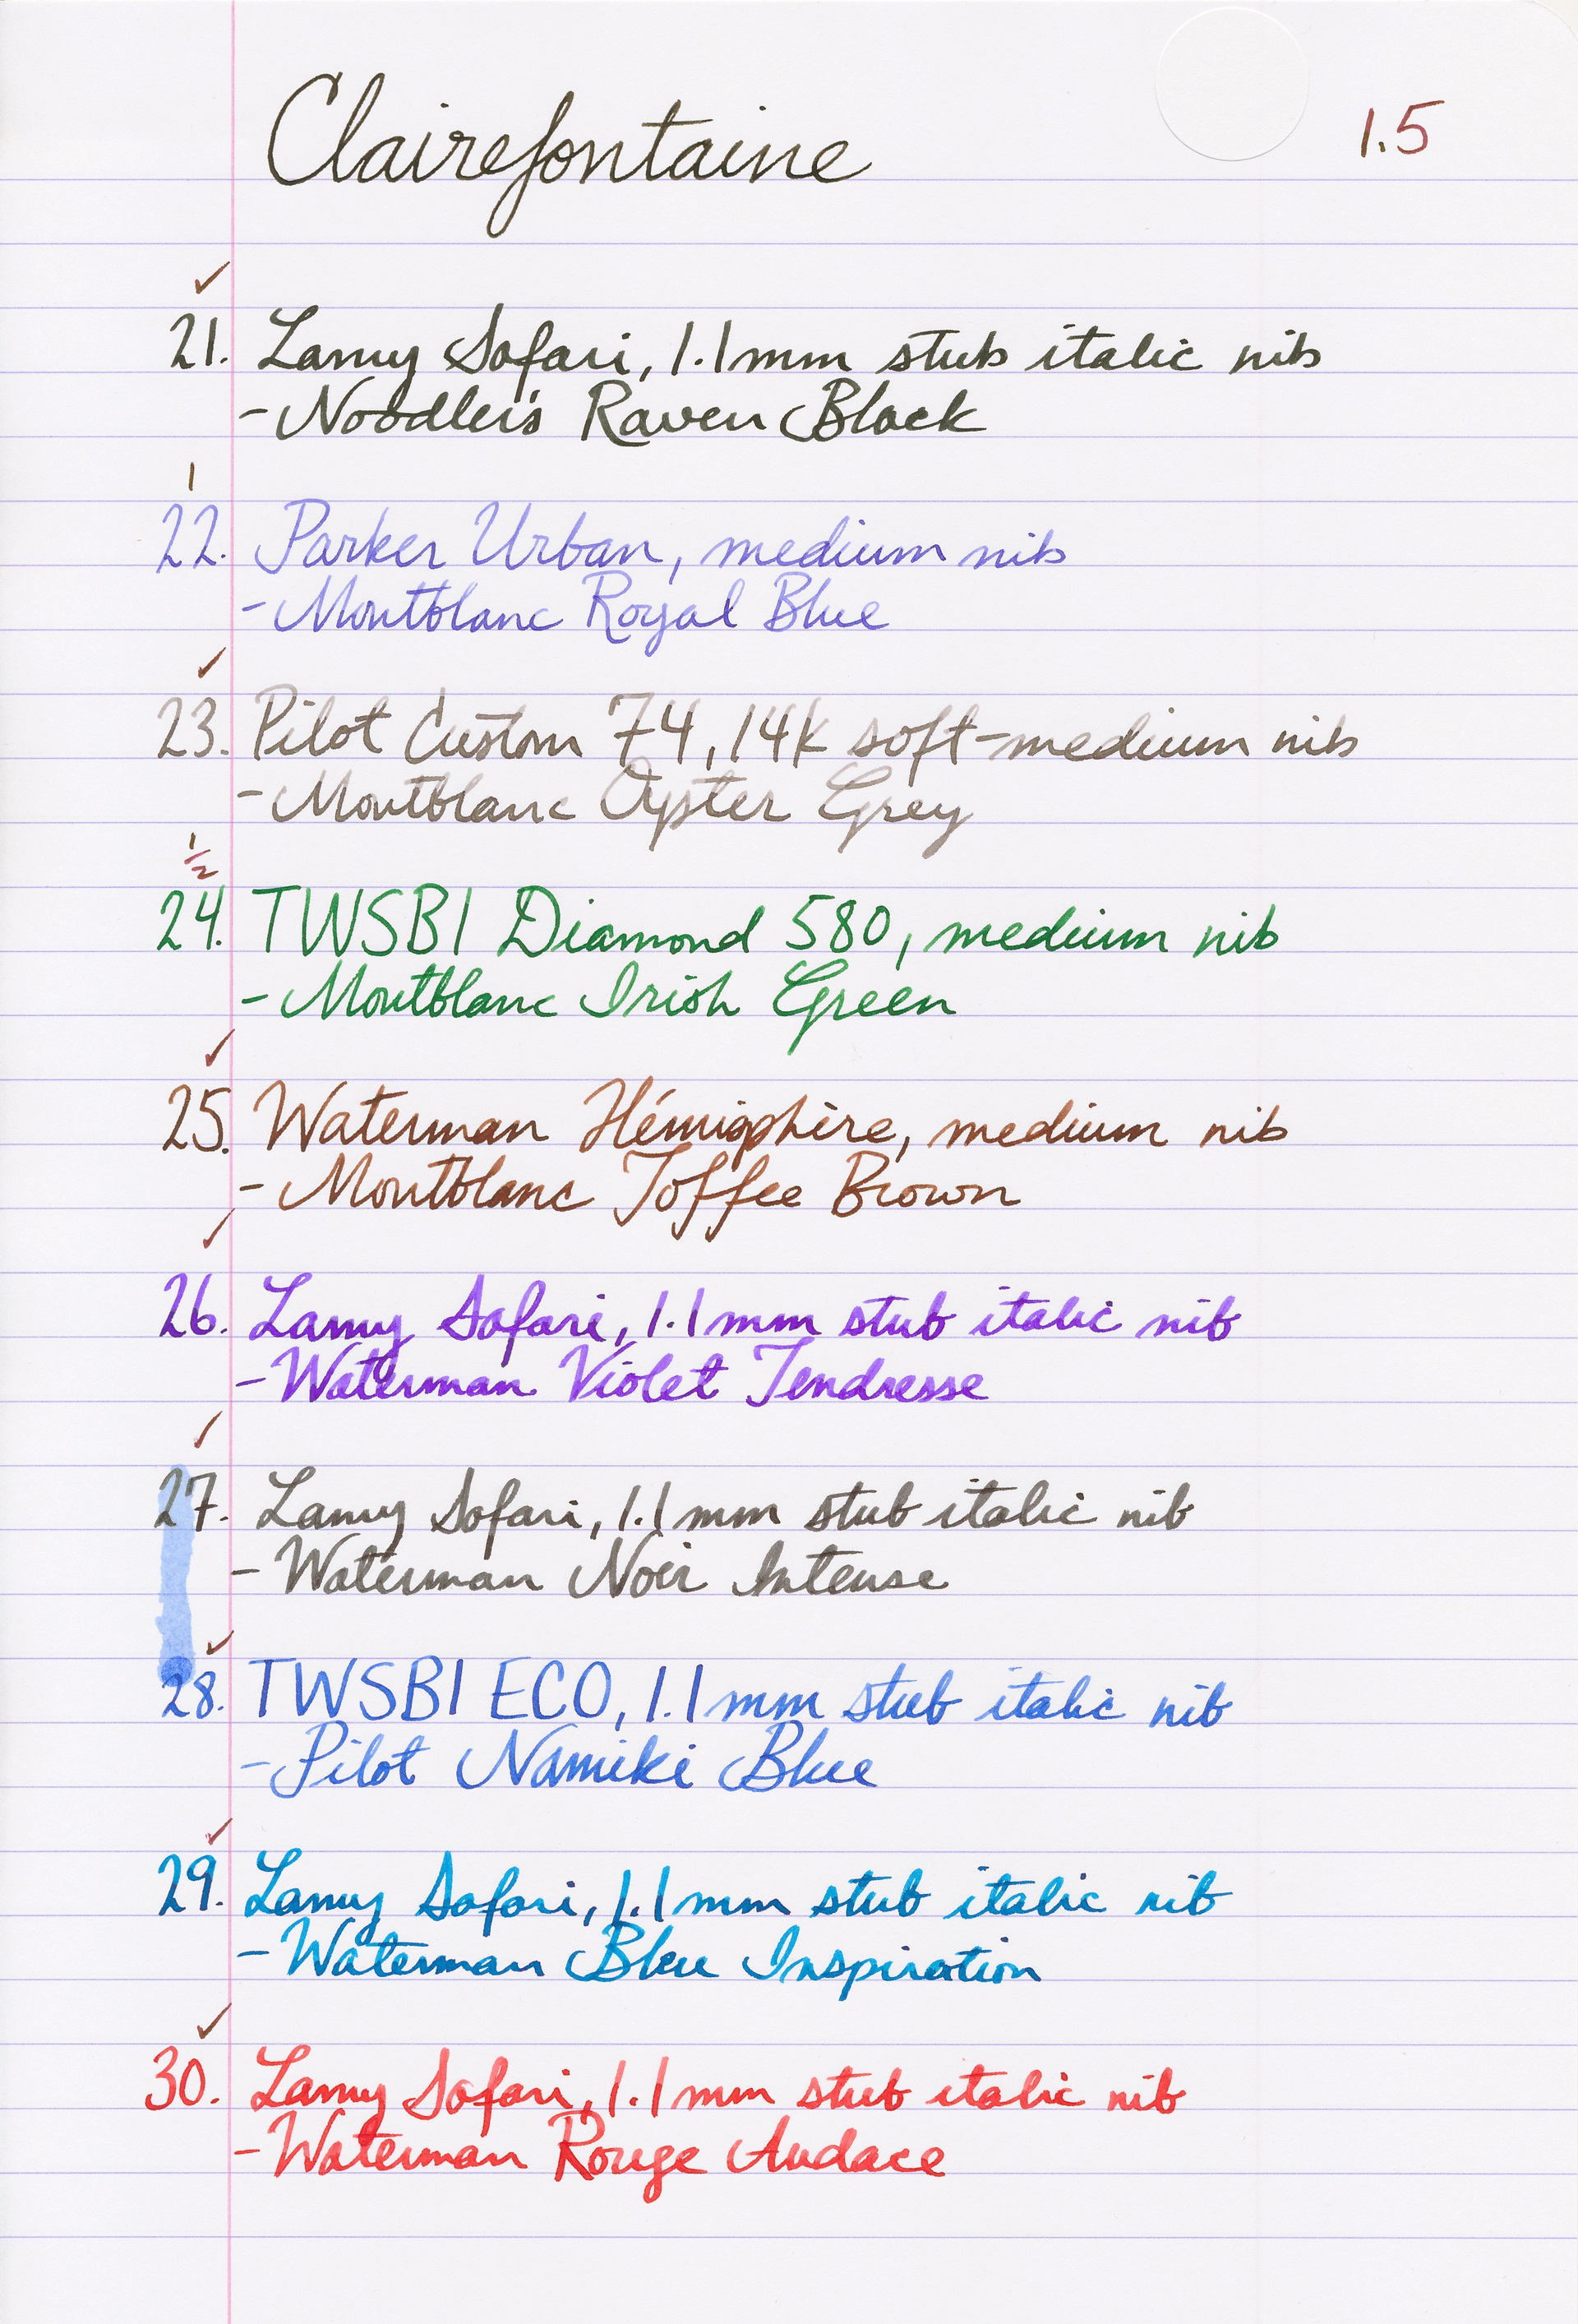 Clairefontaine
1.5
✓
21. Lamy Safari, 1.1mm stub italic nib
- Noodler's Raven Black
1
22. Parker Urban, medium nib
- Montblanc Royal Blue
✓
23. Pilot Custom 74, 14k soft-medium nib
- Montblanc Oyster Grey
1/2
24. TWSBI Diamond 580, medium nib
- Montblanc Irish Green
✓
25. Waterman Hémisphère, medium nib
- Montblanc Toffee Brown
✓
26. Lamy Safari, 1.1mm stub italic nib
- Waterman Violet Tendresse
✓
27. Lamy Safari, 1.1mm stub italic nib
- Waterman Noir Intense
✓
28. TWSBI ECO, 1.1mm stub italic nib
- Pilot Namiki Blue
✓
29. Lamy Safari, 1.1mm stub italic nib
- Waterman Blue Inspiration
✓
30. Lamy Safari, 1.1mm stub italic nib
- Waterman Rouge Audace